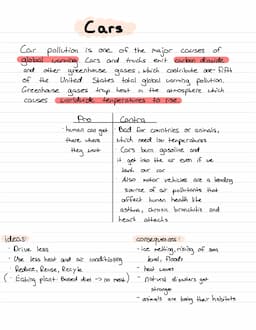 Cars
Car pollution is one of the major causes of
global warming. Cars and trucks emit carbon dioxide
and other greenhouse gases, which contribute one-fifth
of the United States total global warming pollution.
Greenhouse gases trap heat in the atmosphere which
causes worldwide temperatures to rise.
Pro
Contra
· human can get
there where
they want
Bad for countries or animals,
which need low temperatures
Cars burn gasoline and
it get into the air even if we
lock our car
Also motor vehicles are a leading
source of air pollutants that
affect human health like
asthma, chronic bronchitis and
heart attacks
ideas:
· Drive less
· Use less heat and air conditioning
· Reduce, Reuse, Recycle
(· Eating plant-Based diet → no meat)
consequences:
· ice melting, rising of sea
level, floods
· heat waves
· natural disasters get
stronger
· animals are losing their habitats